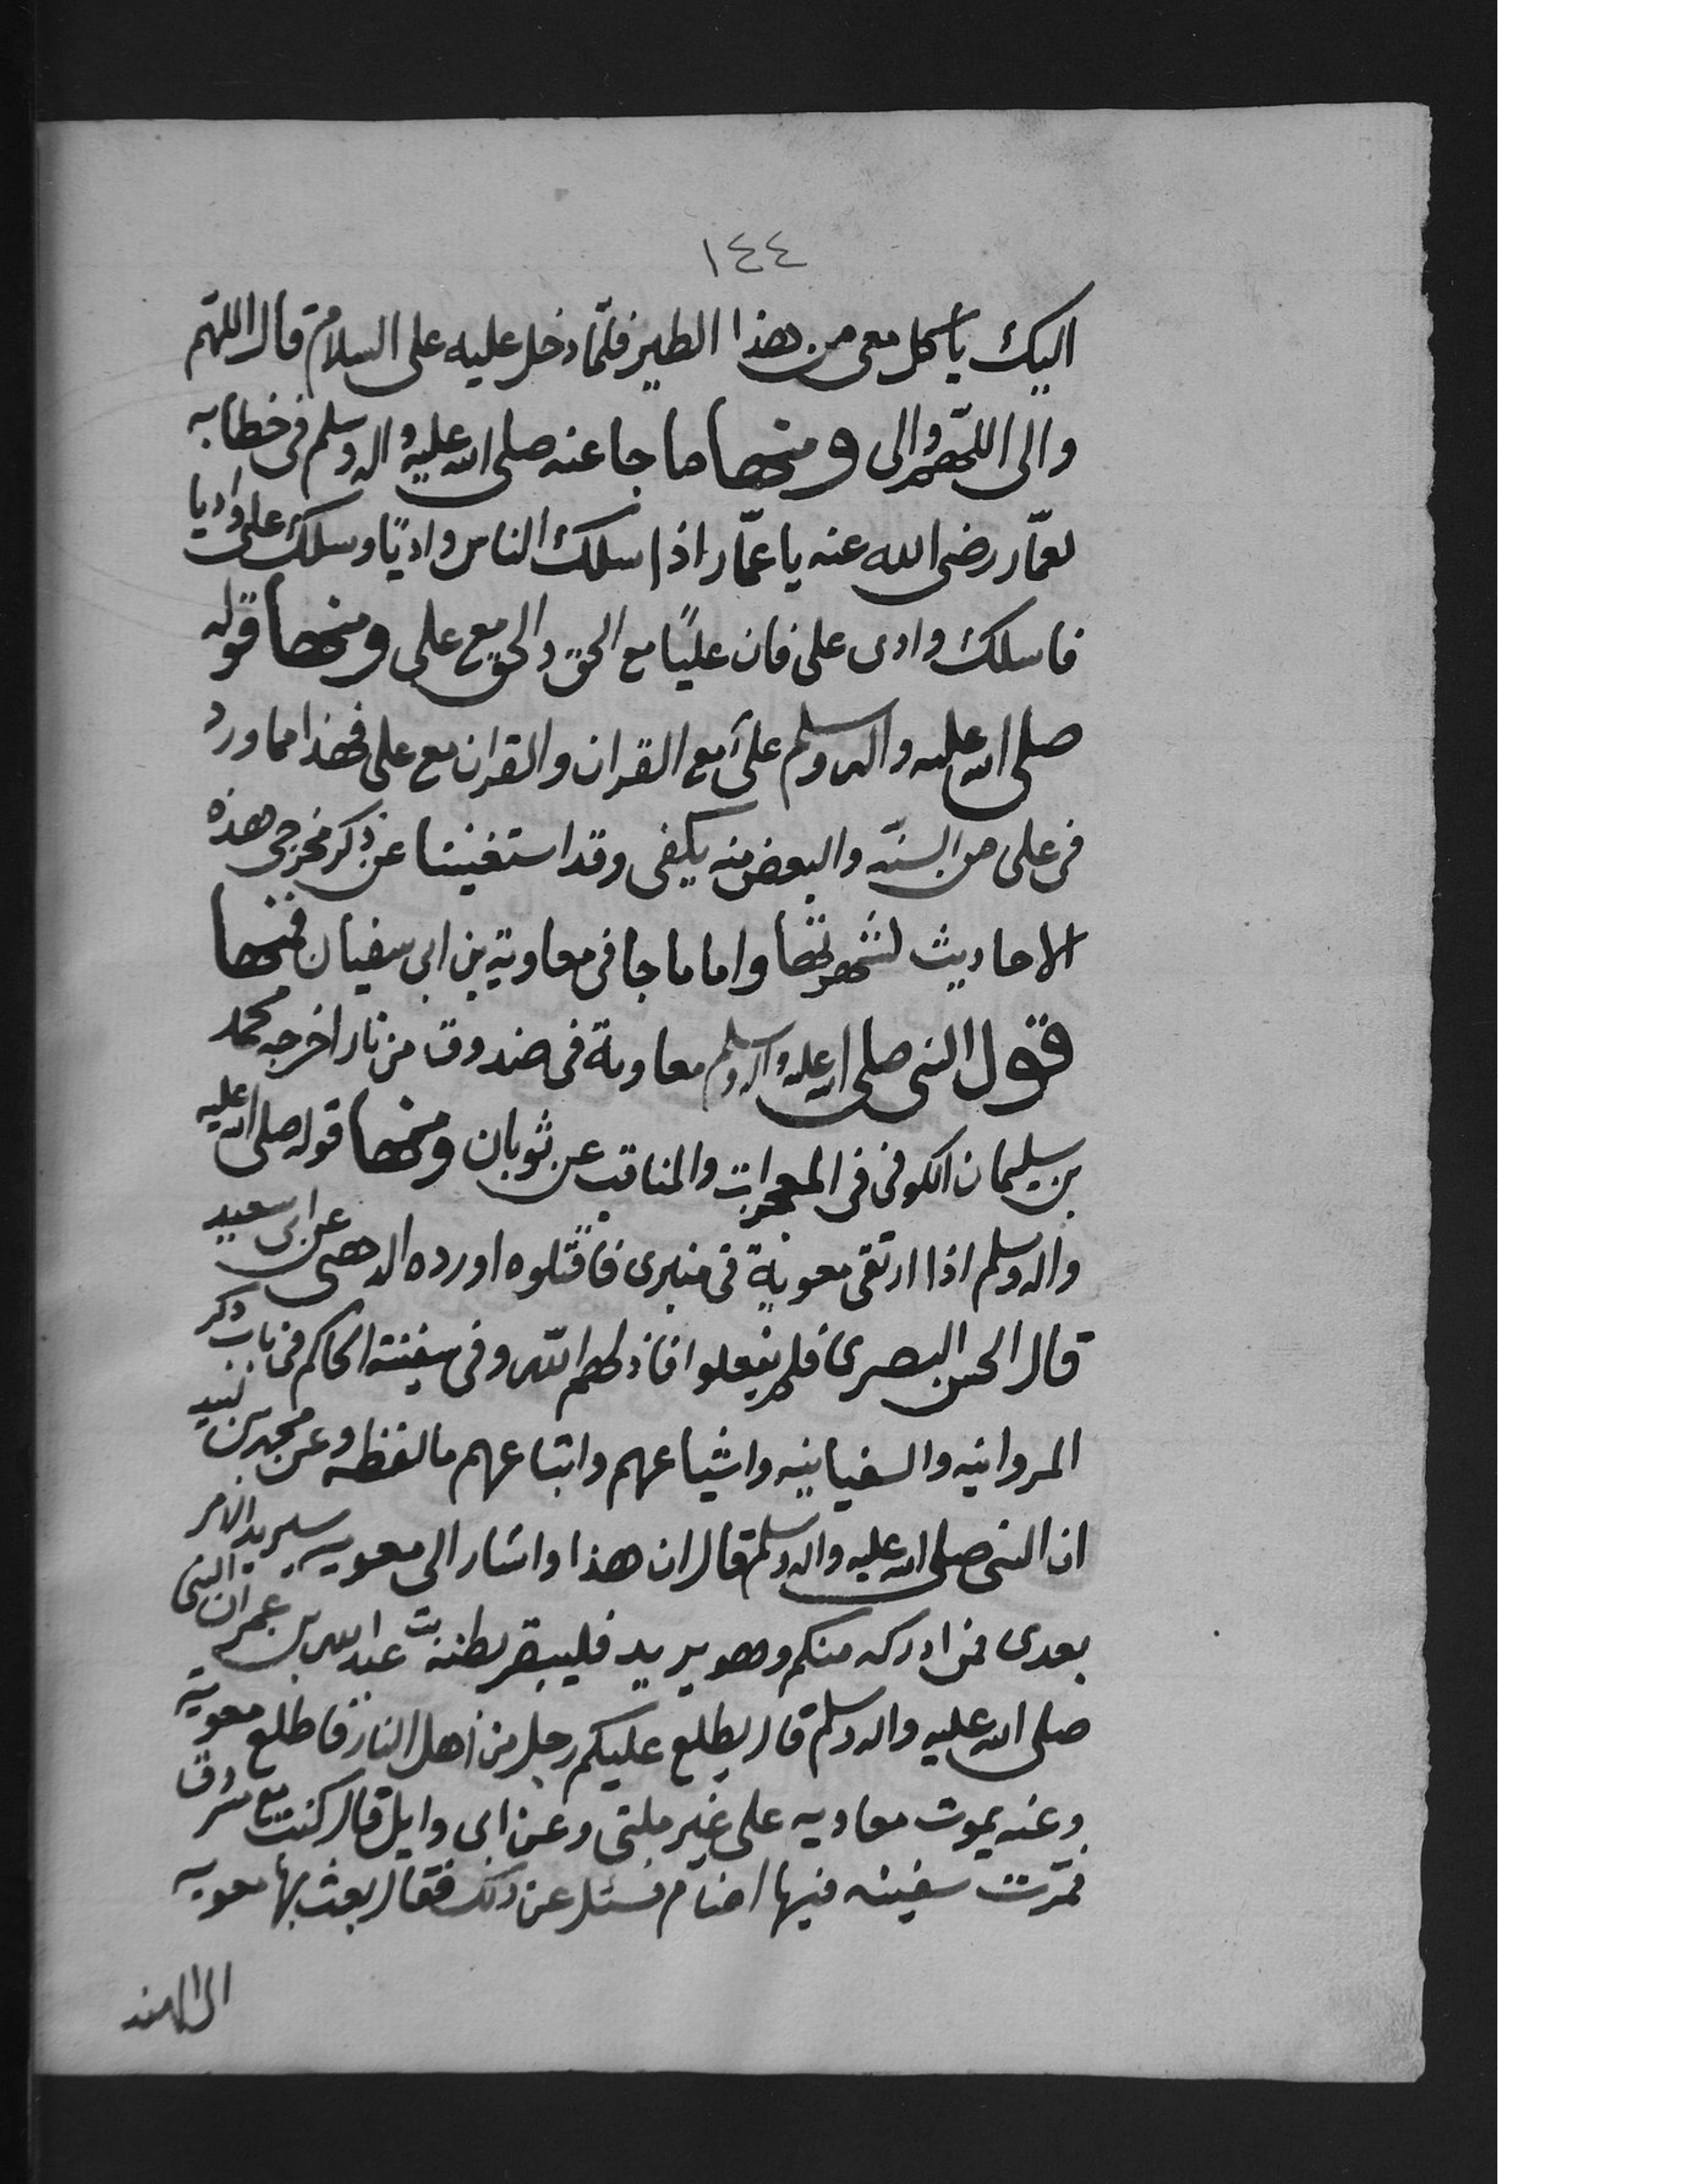 ١٤٤
اليك ياكل معى من هذا الطير فلمّا دخل عليه على السلام قال اللهم
والى اللهم والى ومنها ما جا عنه صلى الله عليه واله وسلم فى خطابه
لعمّار رضى الله عنه يا عمّار اذا سلك الناس واديًا وسلك على واديا
فاسلك وادى على فان عليًا مع الحق والحق مع على ومنها قوله
صلى الله عليه واله وسلم على مع القران والقران مع على فهذا مما ورد
فى على من السنّه والبعض منه يكفى وقد استغنينا عن ذكر مخرجى هذه
الاحاديث لشهرتها واما ما جا فى معاوية بن ابى سفيان فمنها
قول النبى صلى الله عليه واله وسلم معاوية فى صندوق من نار اخرجه محمد
بن سليمان الكوفى فى المعجزات والمناقب عن ثوبان ومنها قوله صلى الله عليه
واله وسلم اذا ارتقى معوية فى منبرى فاقتلوه اورده الذهبى عن ابى سعيد
قال الحسن البصرى فلم يفعلوا فاذلهم الله وفى سفينة الحاكم فى باب ذكر
المروانيه والسفيانيه واشياعهم واتباعهم مالفظه وعن محمد بن لبيد
ان النبى صلى الله عليه واله وسلم قال ان هذا واشار الى معويه سيريد الامر
بعدى فمن ادركه منكم وهو يريد فليبقر بطنه عبد الله بن عمر ان النبى
صلى الله عليه واله وسلم قال يطلع عليكم رجل من اهل النار فاطلع معوية
وعنه يموت معاويه على غير ملتى وعن ابى وايل قال كنت مع مسروق
فمرّت سفينه فيها اصنام فسئل عن ذلك فقال بعث بها معويه
الى الهند